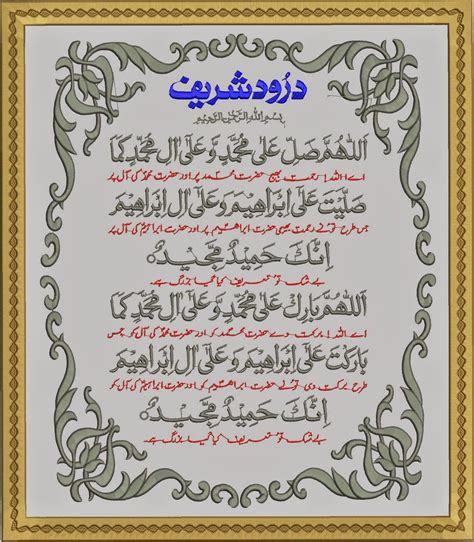 درود شریف
بِسْمِ اللهِ الرَّحْمٰنِ الرَّحِيْمِ
اَللّٰهُمَّ صَلِّ عَلٰى مُحَمَّدٍ وَّ عَلٰٓى اٰلِ مُحَمَّدٍ كَمَا
اے اللہ! رحمت بھیج حضرت محمدؐ پر اور حضرت محمدؐ کی آل پر
صَلَّيْتَ عَلٰٓى اِبْرَاهِيْمَ وَ عَلٰٓى اٰلِ اِبْرَاهِيْمَ
جس طرح تونے رحمت بھیجی حضرت ابراھیمؑ پر اور حضرت ابراہیمؑ کی آل پر
اِنَّكَ حَمِيْدٌ مَّجِيْدٌ
بے شک تو تعریف کیا گیا بزرگ ہے۔
اَللّٰهُمَّ بَارِكْ عَلٰى مُحَمَّدٍ وَّ عَلٰٓى اٰلِ مُحَمَّدٍ كَمَا
اے اللہ! برکت دے حضرت محمدؐ کو اور حضرت محمدؐ کی آل کو جس
بَارَكْتَ عَلٰٓى اِبْرَاهِيْمَ وَ عَلٰٓى اٰلِ اِبْرَاهِيْمَ
طرح برکت دی تونے حضرت ابراھیمؑ کو اور حضرت ابراہیمؑ کی آل کو
اِنَّكَ حَمِيْدٌ مَّجِيْدٌ
بے شک تو تعریف کیا گیا بزرگ ہے۔